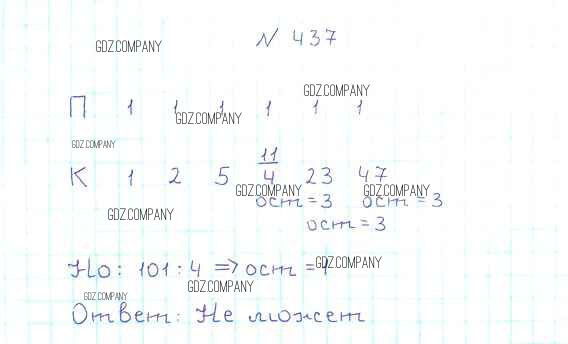 N 437
GDZ.COMPANY
GDZ.COMPANY
П 1 1 1 1 1 1
GDZ.COMPANY
GDZ.COMPANY
11
К 1 2 5 4 23 47
GDZ.COMPANY
GDZ.COMPANY
ост = 3 ост = 3
GDZ.COMPANY
ост = 3
GDZ.COMPANY
Но: 101 : 4 => ост = 1
GDZ.COMPANY
GDZ.COMPANY
Ответ: Не может